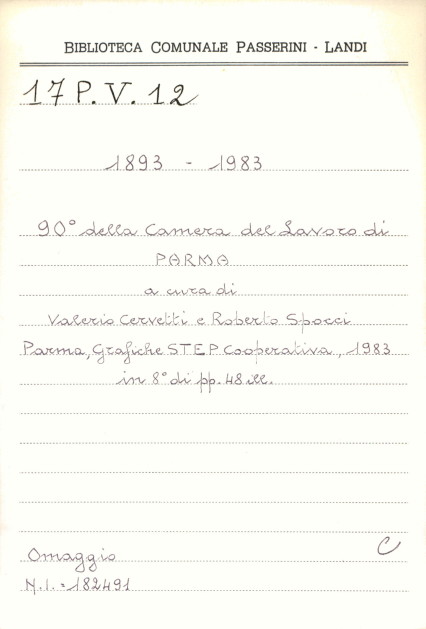 BIBLIOTECA COMUNALE PASSERINI - LANDI
17 P. V. 12
1893 - 1983
90° della Camera del Lavoro di
PARMA
a cura di
Valerio Cervetti e Roberto Spocci
Parma, Grafiche STEP Cooperativa, 1983
in 8° di pp. 48 ill.
C
Omaggio
N.I. = 182491